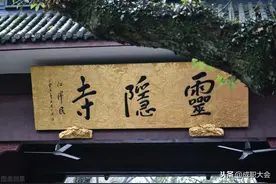 靈隱寺
江澤民
头条 @成聪大会